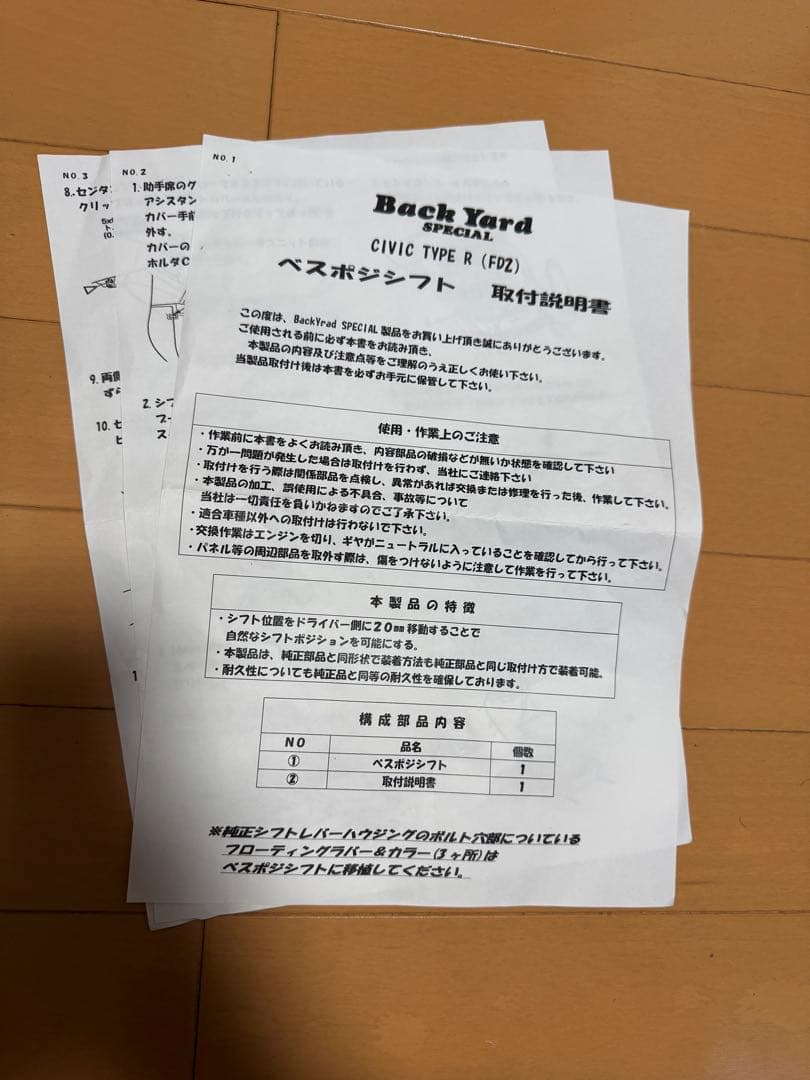 NO.1
Back Yard
SPECIAL
CIVIC TYPE R (FD2)
ベスポジシフト 取付説明書
この度は、BackYrad SPECIAL製品をお買い上げ頂き誠にありがとうございます。
ご使用される前に必ず本書をお読み頂き、
本製品の内容及び注意点等をご理解のうえ正しくお使い下さい。
当製品取付け後は本書を必ずお手元に保管して下さい。
使用・作業上のご注意
・作業前に本書をよくお読み頂き、内容部品の破損などが無いか状態を確認して下さい
・万が一問題が発生した場合は取付けを行わず、当社にご連絡下さい
・取付けを行う際は関係部品を点検し、異常があれば交換または修理を行った後、作業して下さい。
・本製品の加工、誤使用による不具合、事故等について
当社は一切責任を負いかねますのでご了承下さい。
・適合車種以外への取付けは行わないで下さい。
・交換作業はエンジンを切り、ギヤがニュートラルに入っていることを確認してから行って下さい。
・パネル等の周辺部品を取外す際は、傷をつけないように注意して作業を行って下さい。
本製品の特徴
・シフト位置をドライバー側に20mm移動することで
自然なシフトポジションを可能にする。
・本製品は、純正部品と同形状で装着方法も純正部品と同じ取付け方で装着可能。
・耐久性についても純正品と同等の耐久性を確保しております。
構成部品内容
NO 品名 個数
① ベスポジシフト 1
② 取付説明書 1
※純正シフトレバーハウジングのボルト穴部についている
フローティングラバー＆カラー(3ヶ所)は
ベスポジシフトに移植してください。
NO.2
1. 助手席のグ
アシスタン
カバー手前
外す。
カバーの
ホルダC
2. シフ
ブー
ス
NO.3
8. センタ
クリッ
9. 両側
ずら
10. セ